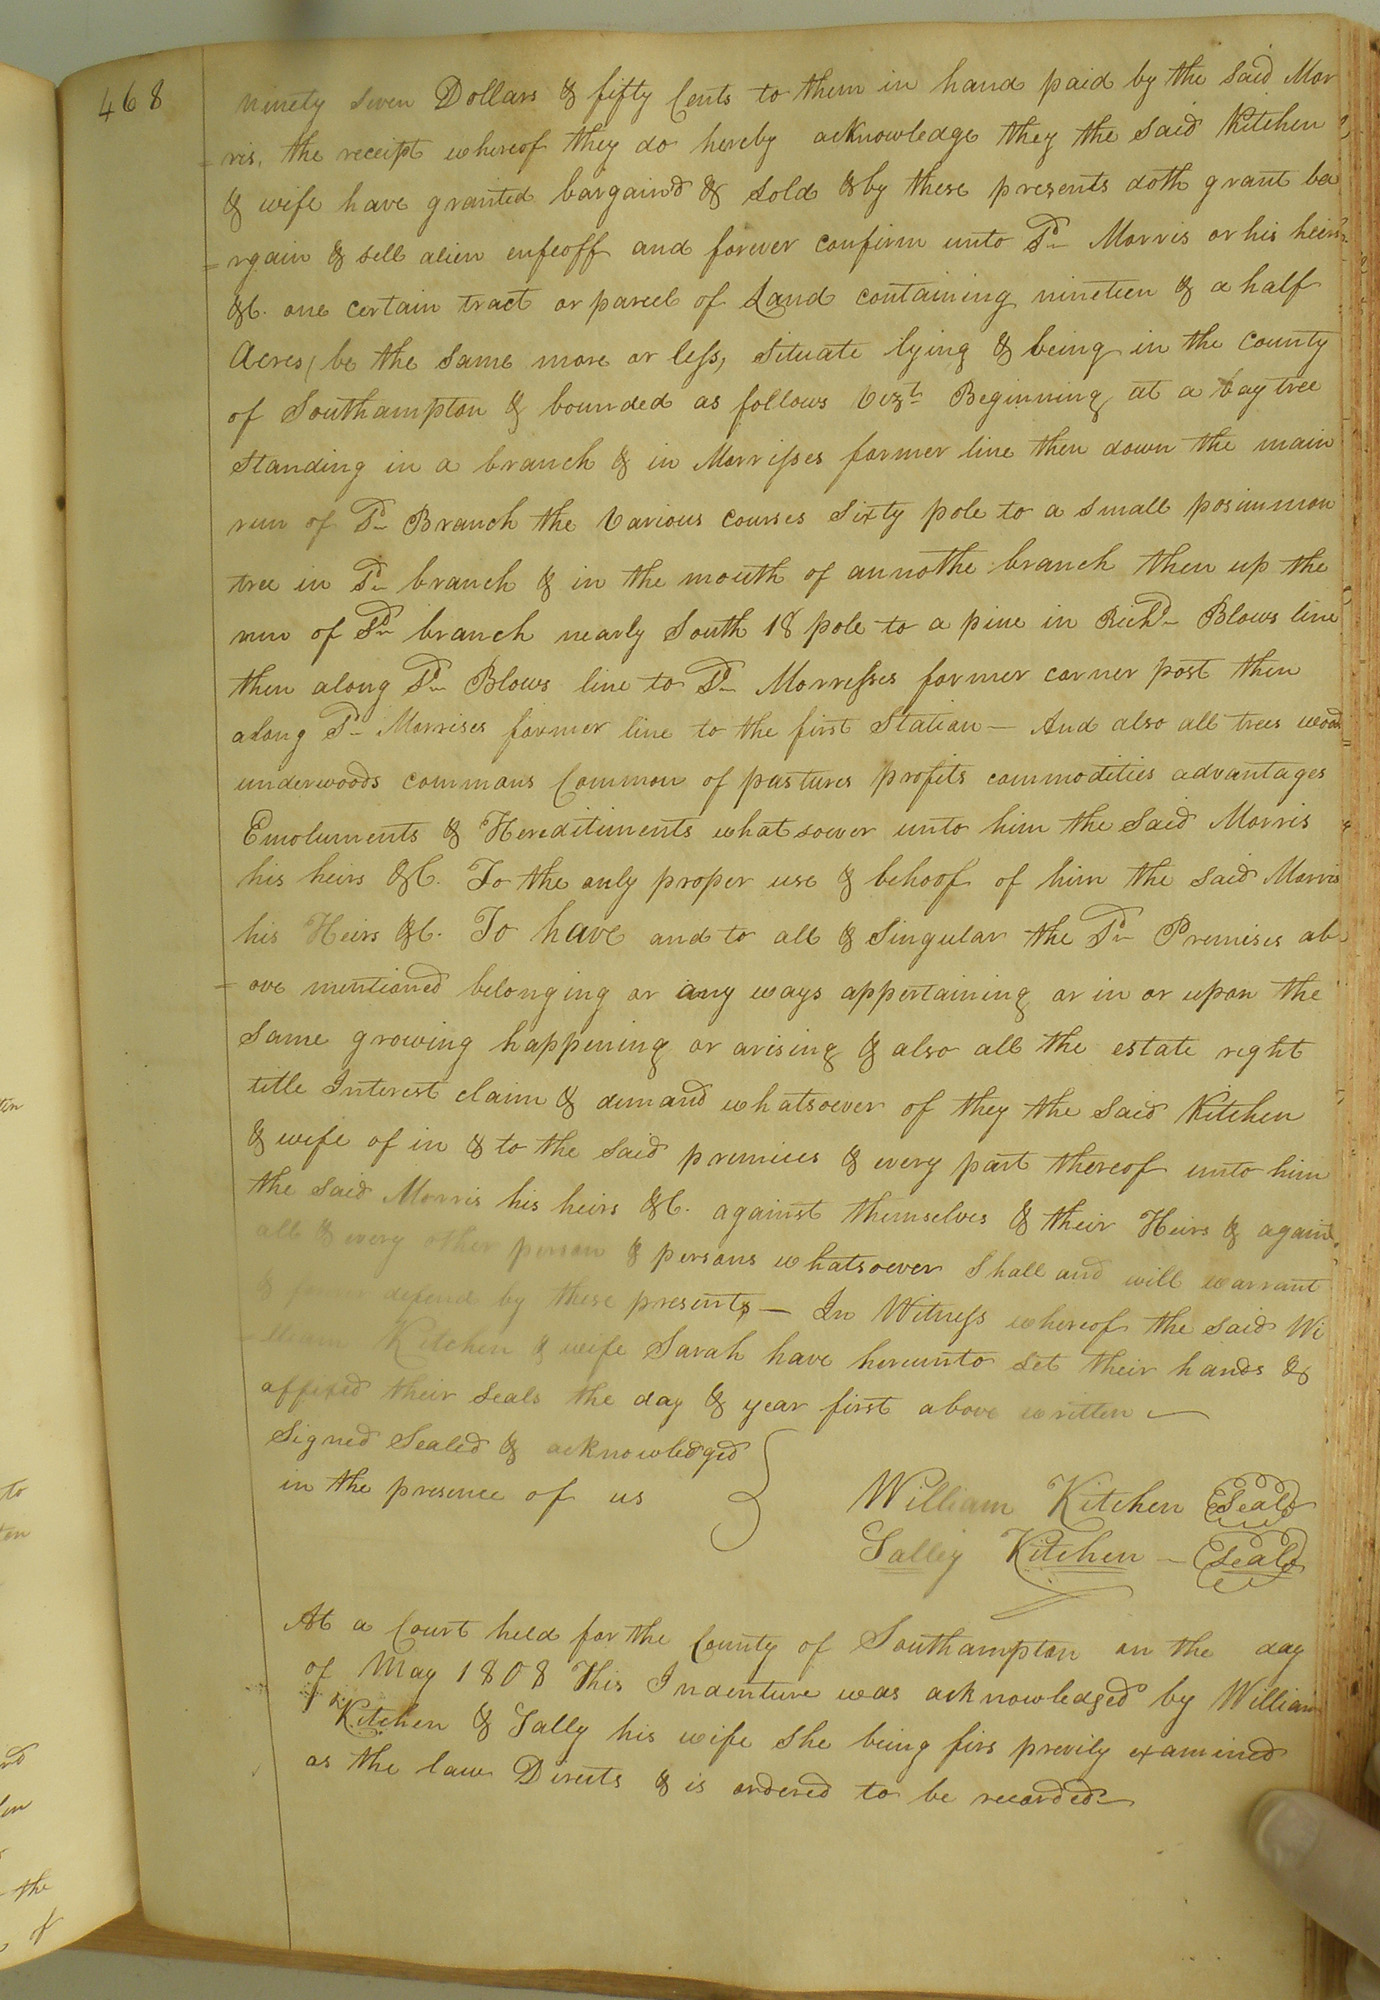 468
ninety seven Dollars & fifty Cents to them in hand paid by the said Mor
=ris, the receipt whereof they do hereby acknowledge they the said Kitchen
& wife have granted bargaind & sold & by these presents doth grant ba
=rgain & sell alien enfeoff and forever confirm unto Sd Morris or his heirs
&C. one certain tract or parcel of Land containing nineteen & a half
Acres (be the same more or less, situate lying & being in the county
of Southampton & bounded as follows Vizt Beginning at a baytree
standing in a branch & in Morrisses former line then down the main
run of Sd Branch the Various courses Sixty pole to a small posimmon
tree in Sd branch & in the mouth of annothe branch then up the
run of Sd branch nearly South 18 pole to a pine in Richd Blows line
then along Sd Blows line to Sd Morresses former corner post then
along Sd Morrises former line to the first Station — And also all trees wood
underwoods commons Common of pastures profits commodities advantages
Emoluments & Heredituments whatsoever unto him the said Morris
his heirs &C. To the only proper use & behoof of him the said Morris
his Heirs &C. To have and to all & Singular the Sd Premises ab
=ove mentioned belonging or any ways appertaining or in or upon the
same growing happening or arising & also all the estate right
title Interest claim & demand whatsoever of they the said Kitchen
& wife of in & to the said premices & every part thereof unto him
the said Morris his heirs &C. against themselves & their Heirs & against
all & every other person & persons whatsoever Shall and will warrant
& defend by these presents — In Witness whereof the said Wi
=lliam Kitchen & wife Sarah have hereunto set their hands &
affixed their seals the day & year first above written —
Signed Sealed & acknowledged
in the presence of us
William Kitchen Seal
Salley Kitchen — Seal
At a Court held for the County of Southampton on the day
of May 1808 This Indenture was acknowledged by William
Kitchen & Sally his wife she being firs previly examined
as the law Directs & is ordered to be recorded —